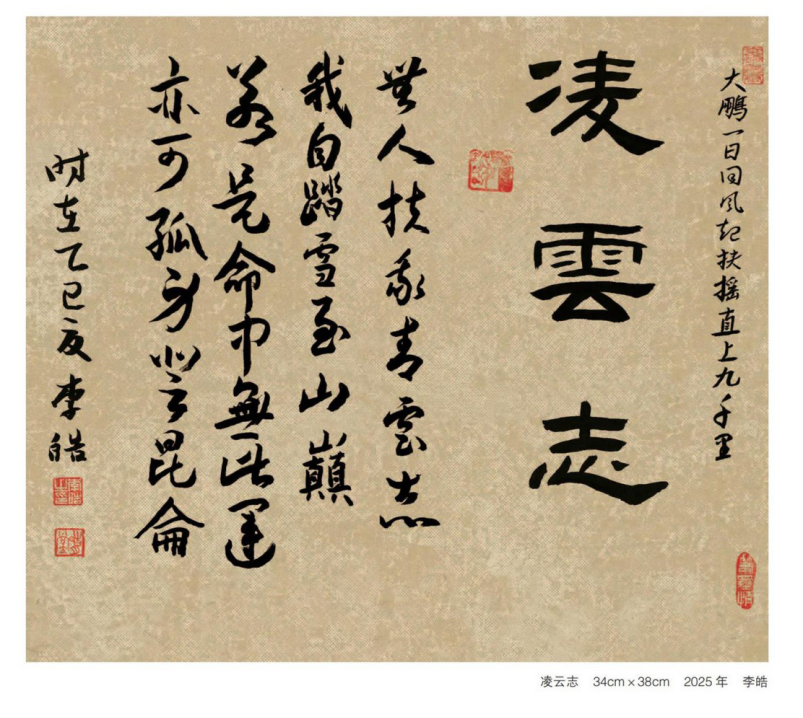 大鵬一日同风起扶摇直上九千里
凌雲志
無人扶我青雲志
我自踏雪至山巔
若是命中無此運
亦可孤身登昆侖
时在乙巳夏李皓
凌云志 34cm×38cm 2025年 李皓